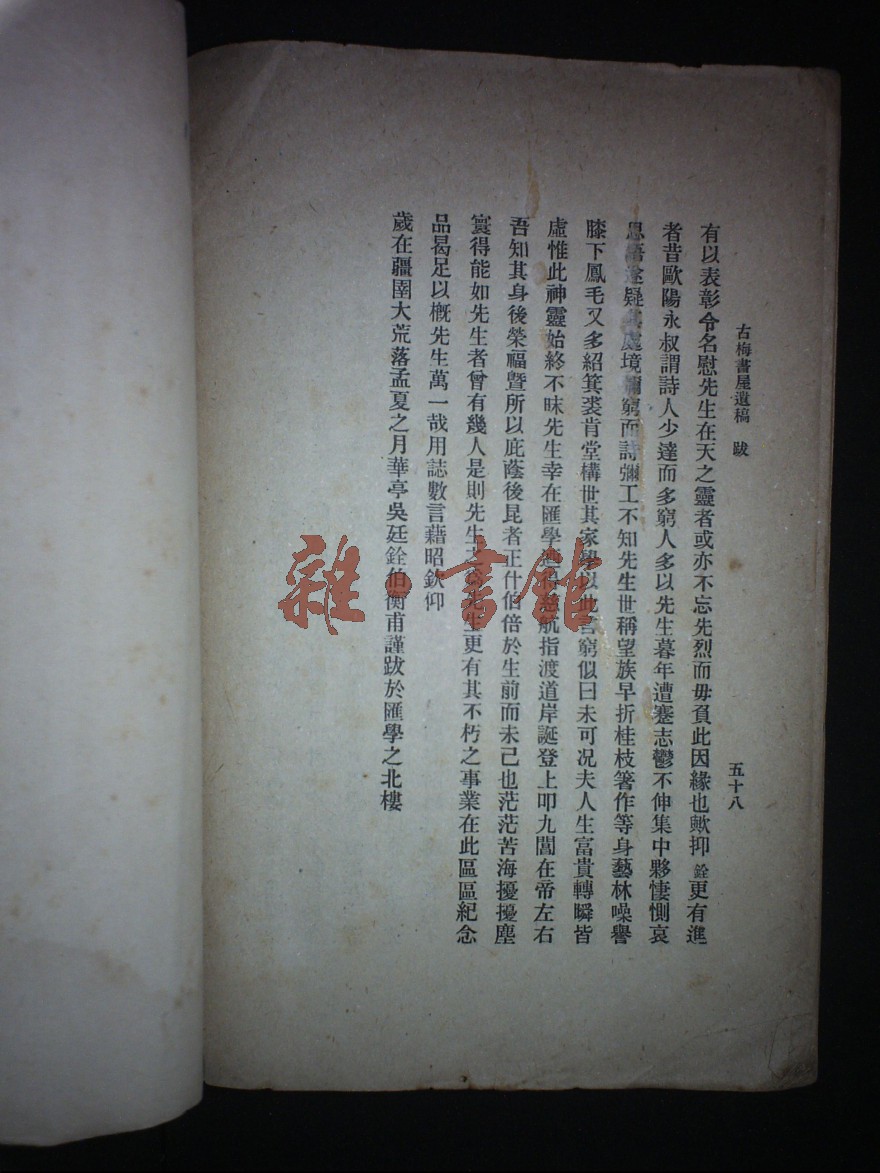 古梅書屋遺稿 跋
五十八
有以表彰令名慰先生在天之靈者或亦不忘先烈而毋負此因緣也歟抑銓更有進
者昔歐陽永叔謂詩人少達而多窮人多以先生暮年遭蹇志鬱不伸集中夥悽惻哀
思語遂疑其處境彌窮而詩彌工不知先生世稱望族早折桂枝箸作等身藝林噪譽
膝下鳳毛又多紹箕裘肯堂構世其家學以此言窮似曰未可况夫人生富貴轉瞬皆
虛惟此神靈始終不昧先生幸在匯學航指渡道岸誕登上叩九閶在帝左右
吾知其身後榮福暨所以庇蔭後昆者正什伯倍於生前而未已也茫茫苦海擾擾塵
寰得能如先生者曾有幾人是則先生之先生更有其不朽之事業在此區區紀念
品曷足以概先生萬一哉用誌數言藉昭欽仰
歲在疆圉大荒落孟夏之月華亭吳廷銓伯衡甫謹跋於匯學之北樓
雜·書館